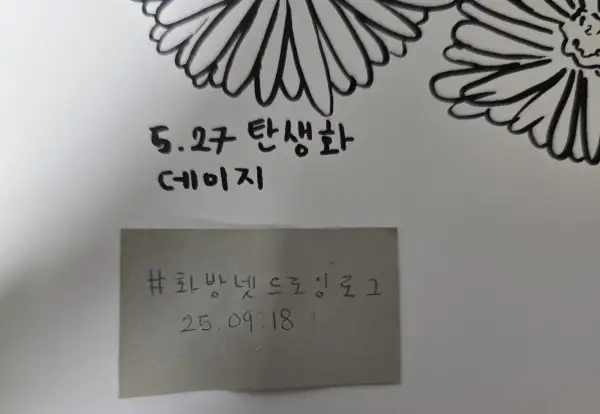 5.27 탄생화
데이지
#화방넷드로잉로그
25.09.18